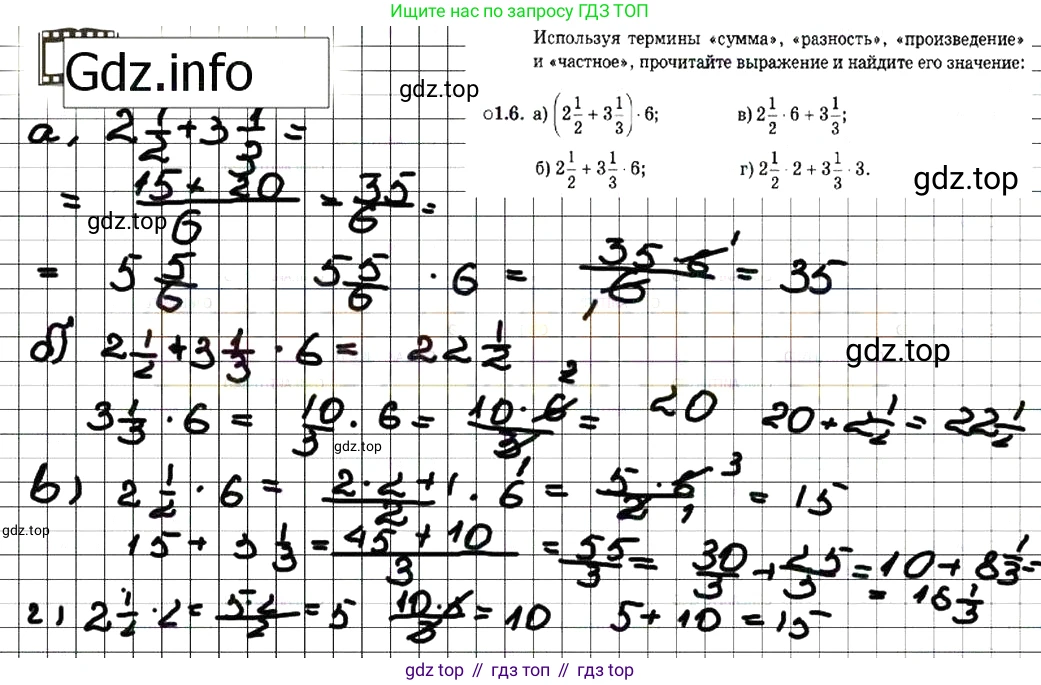 Ищите нас по запросу ГДЗ ТОП
Используя термины «сумма», «разность», «произведение»
и «частное», прочитайте выражение и найдите его значение:
Gdz.info
gdz.top
○1.6. а) (2 1/2 + 3 1/3) · 6; в) 2 1/2 · 6 + 3 1/3;
б) 2 1/2 + 3 1/3 · 6; г) 2 1/2 · 2 + 3 1/3 · 3.
gdz.top
а, 2 1/2 + 3 1/3 =
= 15 + 20/6 = 35/6 =
gdz.top
= 5 5/6 5 5/6 · 6 = 35 · 6/6 = 35
б) 2 1/2 + 3 1/3 · 6 = 22 1/2
gdz.top
3 1/3 · 6 = 10/3 · 6 = 10 · 6/3 = 20 20 + 2 1/2 = 22 1/2
gdz.top
в) 2 1/2 · 6 = 2 · 2 + 1/2 · 6 = 5 · 6/2 = 15
gdz.top
15 + 3 1/3 = 45 + 10/3 = 55/3 = 30/3 + 25/3 = 10 + 8 1/3 =
= 18 1/3
г) 2 1/2 · 2 = 5 · 2/2 = 5 10 · 3/3 = 10 5 + 10 = 15
gdz top // гдз топ // gdz top